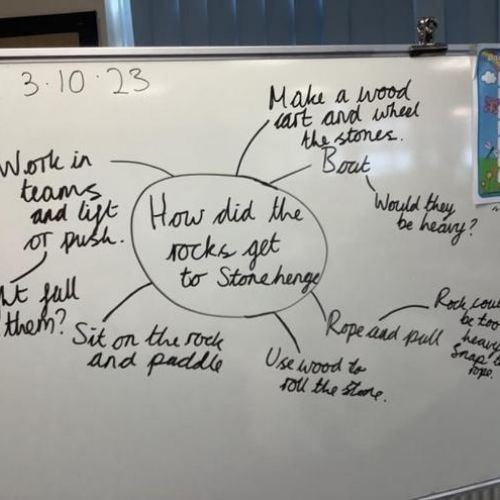 3.10.23
Make a wood
cart and wheel
the stones.
Boat
Would they
be heavy?
Work in
teams
and lift
or push.
fall
them?
How did the
rocks get
to Stonehenge
Sit on the rock
and paddle
Use wood to
roll the stone.
Rope and pull
Rock
be too
heavy
snap
rope.